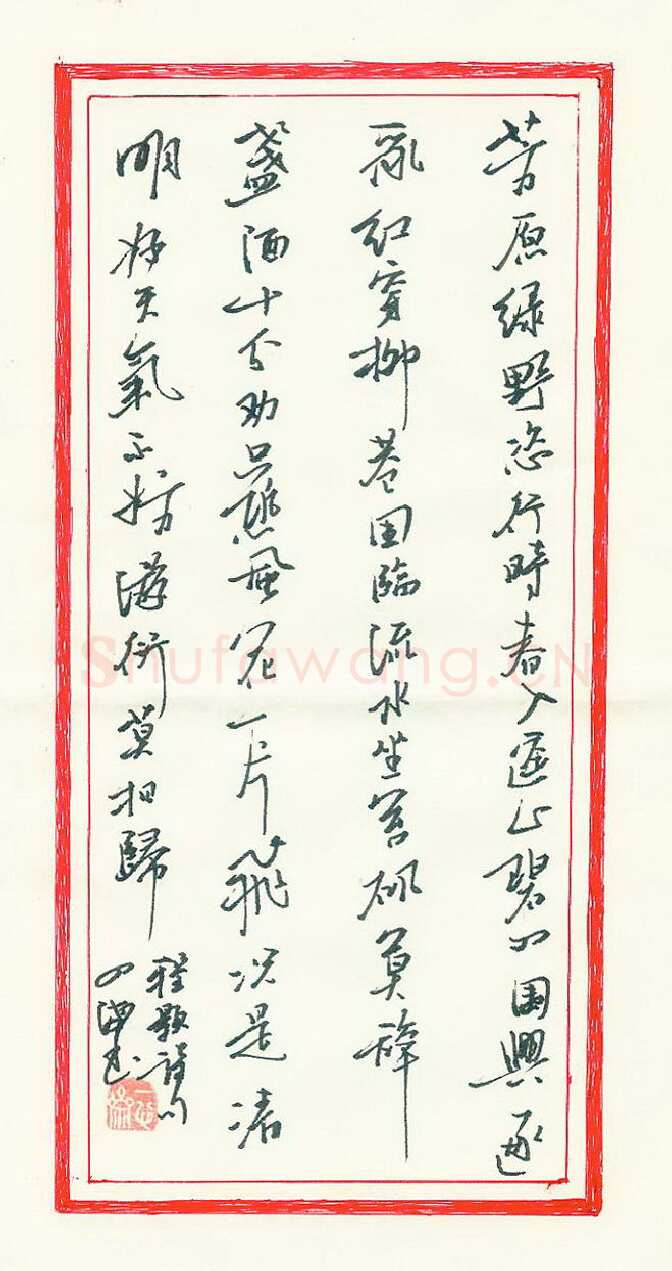 芳原绿野恣行時春入遥山碧四圍興逐
亂红穿柳巷困臨流水坐苔矶莫辞
盞酒十分劝只恐風花一片飛况是清
明好天氣不妨游衍莫忘歸
程颢詩句
Shufawang.CN